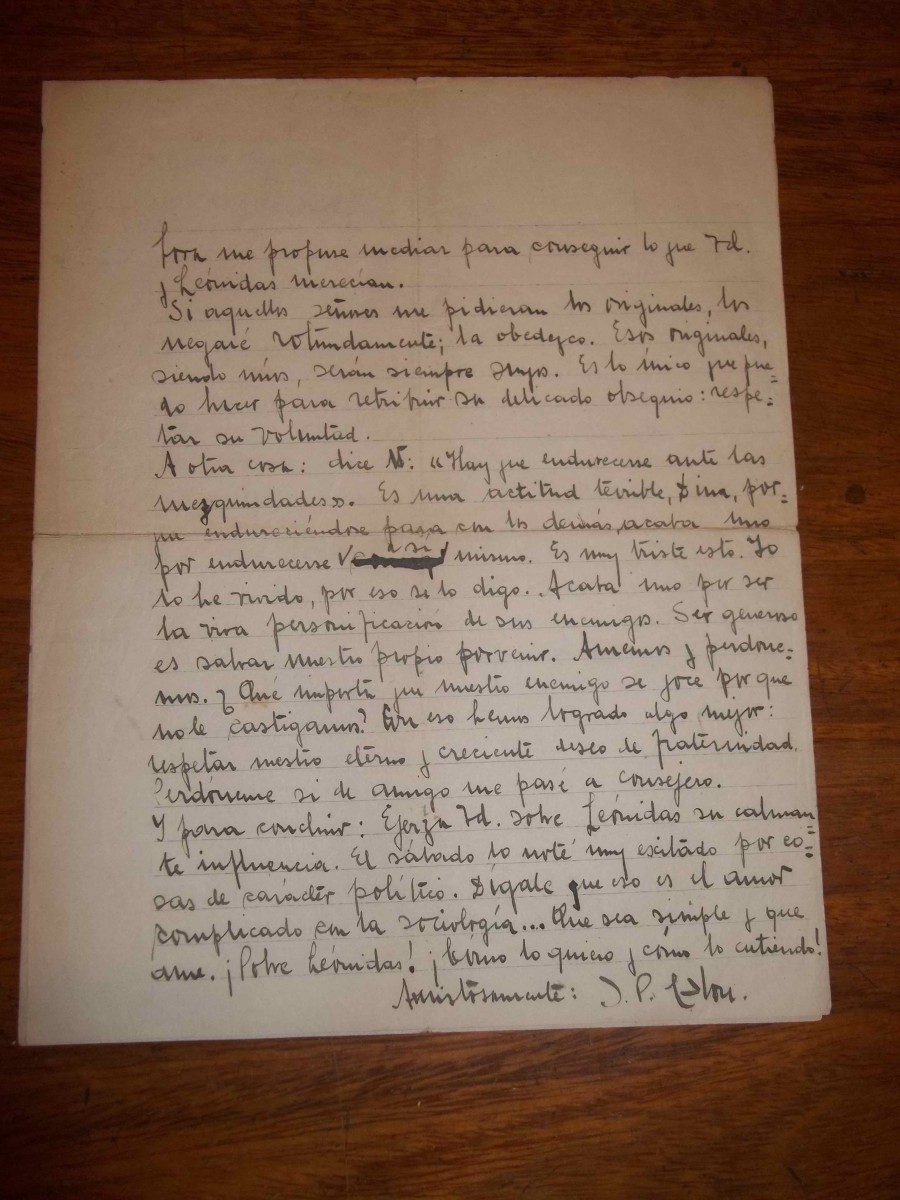 me propuse mediar para conseguir lo que Vd.
y Leónidas merecían.
Si aquellos señores me pidieran los originales, los
negaré rotundamente; la obedezco. Esos originales,
siendo míos, serán siempre suyos. Es lo único que pue=
do hacer para retribuir su delicado obsequio: respe=
tar su voluntad.
A otra cosa: dice «Hay que endurecerse ante las
mezquindades». Es una actitud terrible, Dina, por=
que endureciéndose para con los demás, acaba uno
por endurecerse a si mismo. Es muy triste esto. Yo
lo he vivido, por eso se lo digo. Acaba uno por ser
la viva personificación de sus enemigos. Ser generoso
es salvar nuestro propio porvenir. Amemos y perdone=
mos. ¿Qué importa que nuestro enemigo se goce por que
no le castigamos? Con eso hemos logrado algo mejor:
respetar nuestro eterno y creciente deseo de fraternidad.
Perdóneme si de amigo me pasé a consejero.
Y para concluir: Ejerza Vd. sobre Leónidas su calman=
te influencia. El sábado lo noté muy escitado por co=
sas de carácter político. Dígale que eso es el amor
complicado con la sociología... Que sea simple y que
ame. ¡Pobre Leónidas! ¡Cómo lo quiero y cómo lo entiendo!
Amistosamente: J. P.